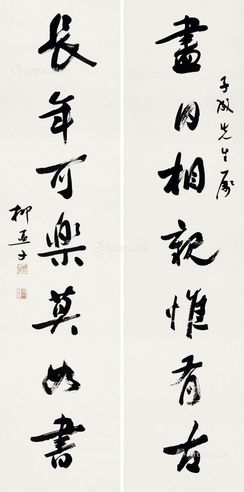 盡日相親惟有石
子成先生屬
長年可樂莫如書
柳亞子